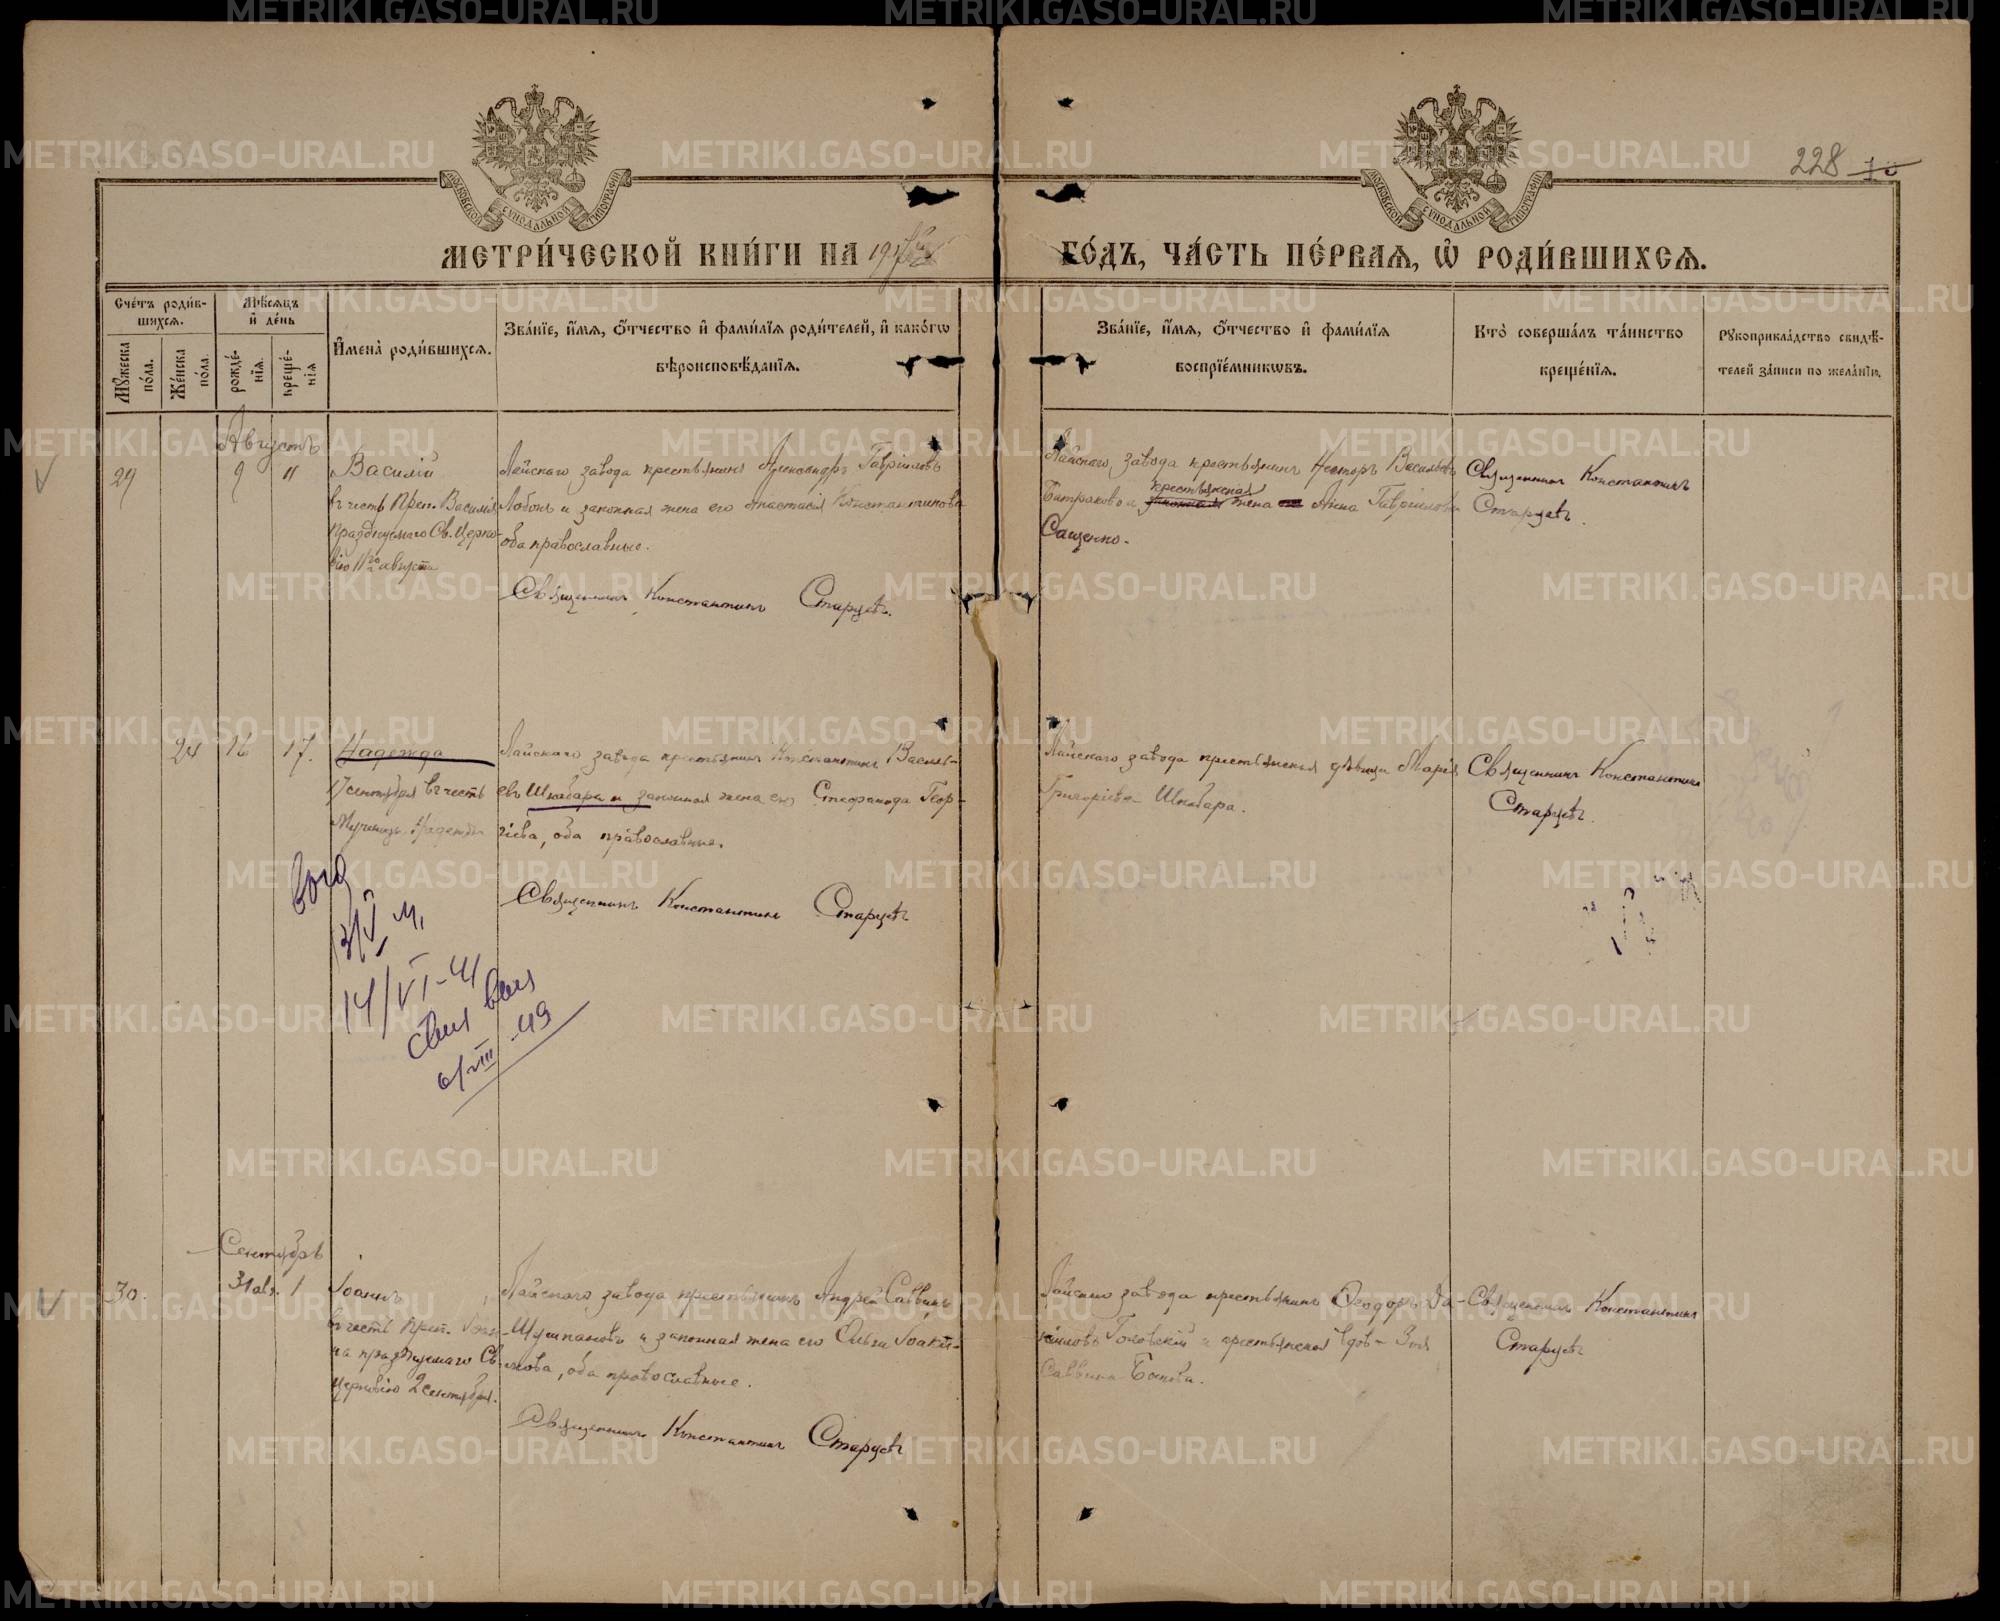 228
МОСКОВСКОЙ СУНОДАЛЬНОЙ ТИПОГРАФИИ
МОСКОВСКОЙ СУНОДАЛЬНОЙ ТИПОГРАФИИ
МЕТРИ́ЧЕСКОЙ КНИ́ГИ НА 19
ГО́ДЪ, ЧА́СТЬ ПЕ́РВАЯ, Ѡ҆ РОДИ́ВШИХСЯ.
Сче́тъ роди́в-
шихся.
Мѣ́сяцъ
и҆ де́нь
Му́жеска
по́ла.
Же́нска
по́ла.
рожде́-
нїя.
креще́-
нїя
И҆мена̀ роди́вшихся.
Зва́нїе, и҆́мя, ѻ҆́тчество и҆ фами́лїя роди́телей, и҆ како́гѡ
вѣроисповѣ́данїя.
Зва́нїе, и҆́мя, ѻ҆́тчество и҆ фами́лїя
воспрїе́мникѡвъ.
Кто̀ соверша́лъ та́инство
креще́нїя.
Рꙋкоприкла́дство свидѣ́-
телей за́писи по жела́нїю.
Августъ
29 9 11 Василій
въ честь Преп. Василія
празднуемаго Св. Церко-
вію 11го августа
Лайскаго завода крестьянинъ Александръ Гавріиловъ
Лобовъ и законная жена его Анастасія Константинова
оба православные.
Священникъ Константинъ Старцевъ.
Лайскаго завода крестьянинъ Несторъ Васильевъ
крестьянская
жена Анна Гавріилова
Сащенко.
Священникъ Константинъ
Старцевъ.
24 16 17. Надежда
17 сентября въ честь
Мученицы Надежды
Лайскаго завода крестьянинъ Константинъ Василь-
евъ Шкабара и законная жена его Стефанида Геор-
гіева, оба православные.
Священникъ Константинъ Старцевъ
Лайскаго завода крестьянская дѣвица Марія
Григоріева Шкабара.
Священникъ Константинъ
Старцевъ.
14/VI-41
6/VIII-49
Сентябрь
30. 31 ав. 1 Іоаннъ
въ честь Преп. Іоан-
на празднуемаго Св.
Церковію 2 сентября.
Лайскаго завода крестьянинъ Андрей Саввинъ
и законная жена его Ольга Іоаки-
мова, оба православные.
Священникъ Константинъ Старцевъ
Лайскаго завода крестьянинъ Ѳеодоръ Да-
ніиловъ и крестьянская вдова Зоя
Саввина
Священникъ Константинъ
Старцевъ
METRIKI.GASO-URAL.RU